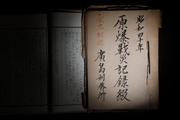 昭和四十年
原爆戦災記録綴
廣島刑務所